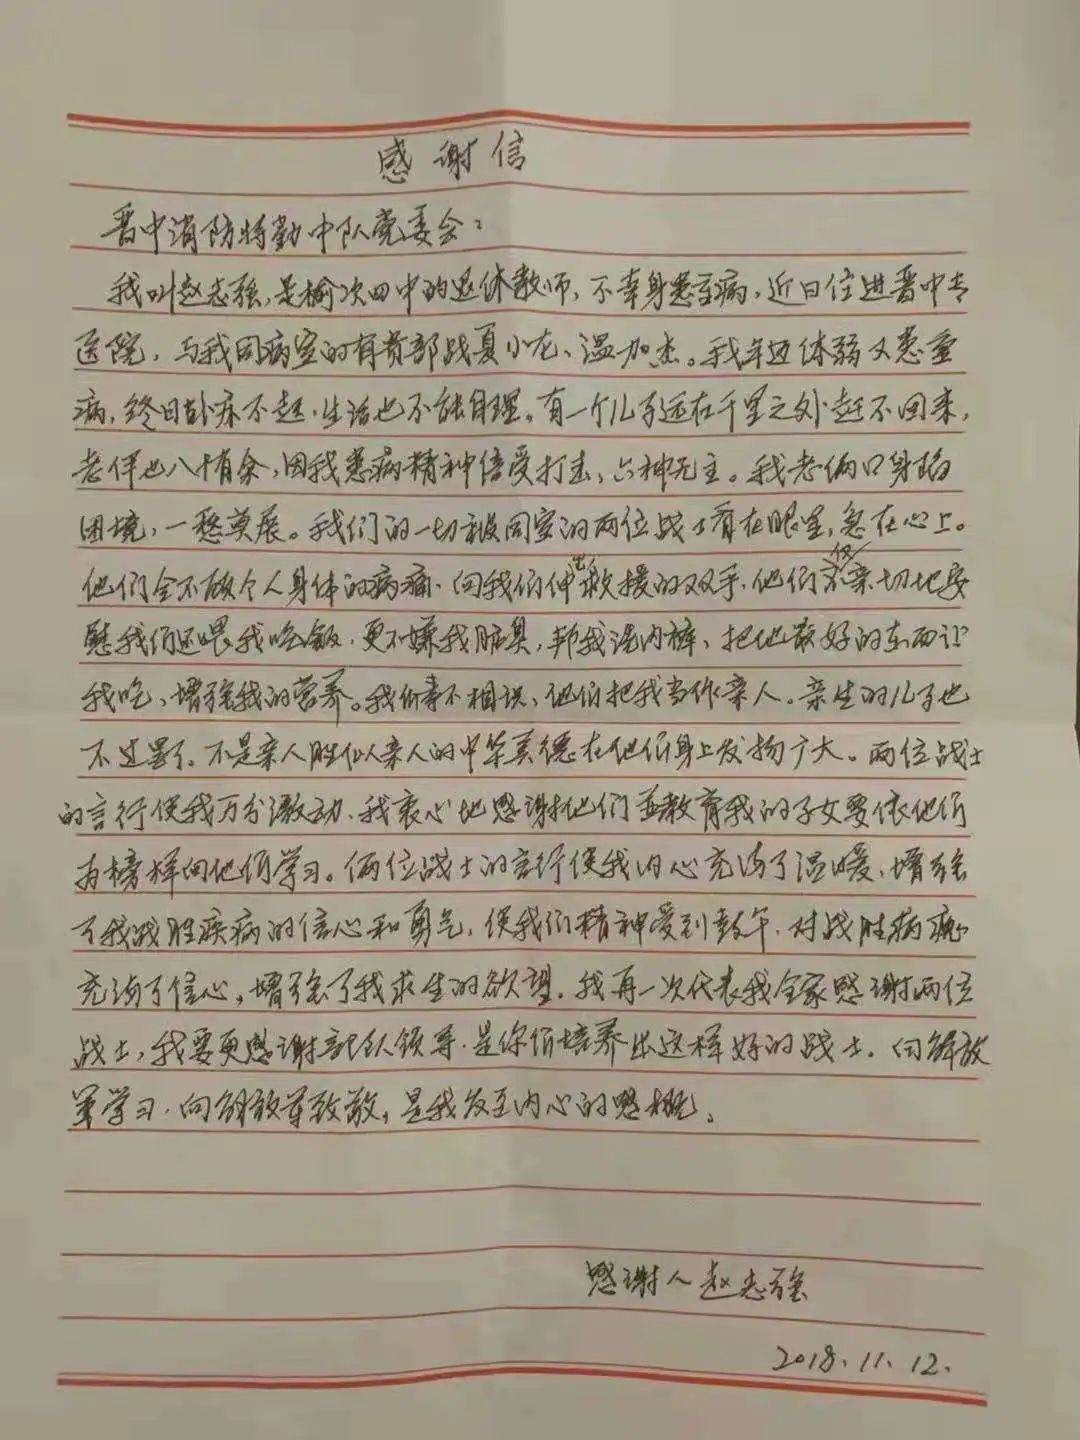 感谢信
晋中消防特勤中队党委会:
我叫赵志强,是榆次四中的退休教师,不幸身患重病,近日住进晋中专
医院,与我同病室的有贵部战夏小龙、温加杰。我年迈体弱又患重
病,终日卧床不起,生活也不能自理。有一个儿子远在千里之外赶不回来,
老伴也八十有余,因我患病精神倍受打击,六神无主。我老俩口身陷
困境,一愁莫展。我们的一切被同室的两位战士看在眼里,急在心上。
他们全不顾个人身体的病痛,向我们伸出救援的双手,他们不仅亲切地安
慰我们还喂我吃饭,更不嫌我脏臭,帮我洗内裤、把他最好的东西让
我吃、增强我的营养。我们素不相识、他们把我当作亲人。亲生的儿子也
不过罢了。不是亲人胜似亲人的中华美德在他们身上发扬广大。两位战士
的言行使我万分激动、我衷心地感谢他们并教育我的子女要依他们
为榜样向他们学习。俩位战士的言行使我内心充满了温暖、增强
了我战胜疾病的信心和勇气,使我们精神受到鼓午,对战胜病魔
充满了信心,增强了我求生的欲望。我再一次代表我全家感谢两位
战士,我要更感谢部队领导,是你们培养出这样好的战士。向解放
军学习,向解放军致敬,是我发至内心的感概。
感谢人赵志强
2018.11.12.